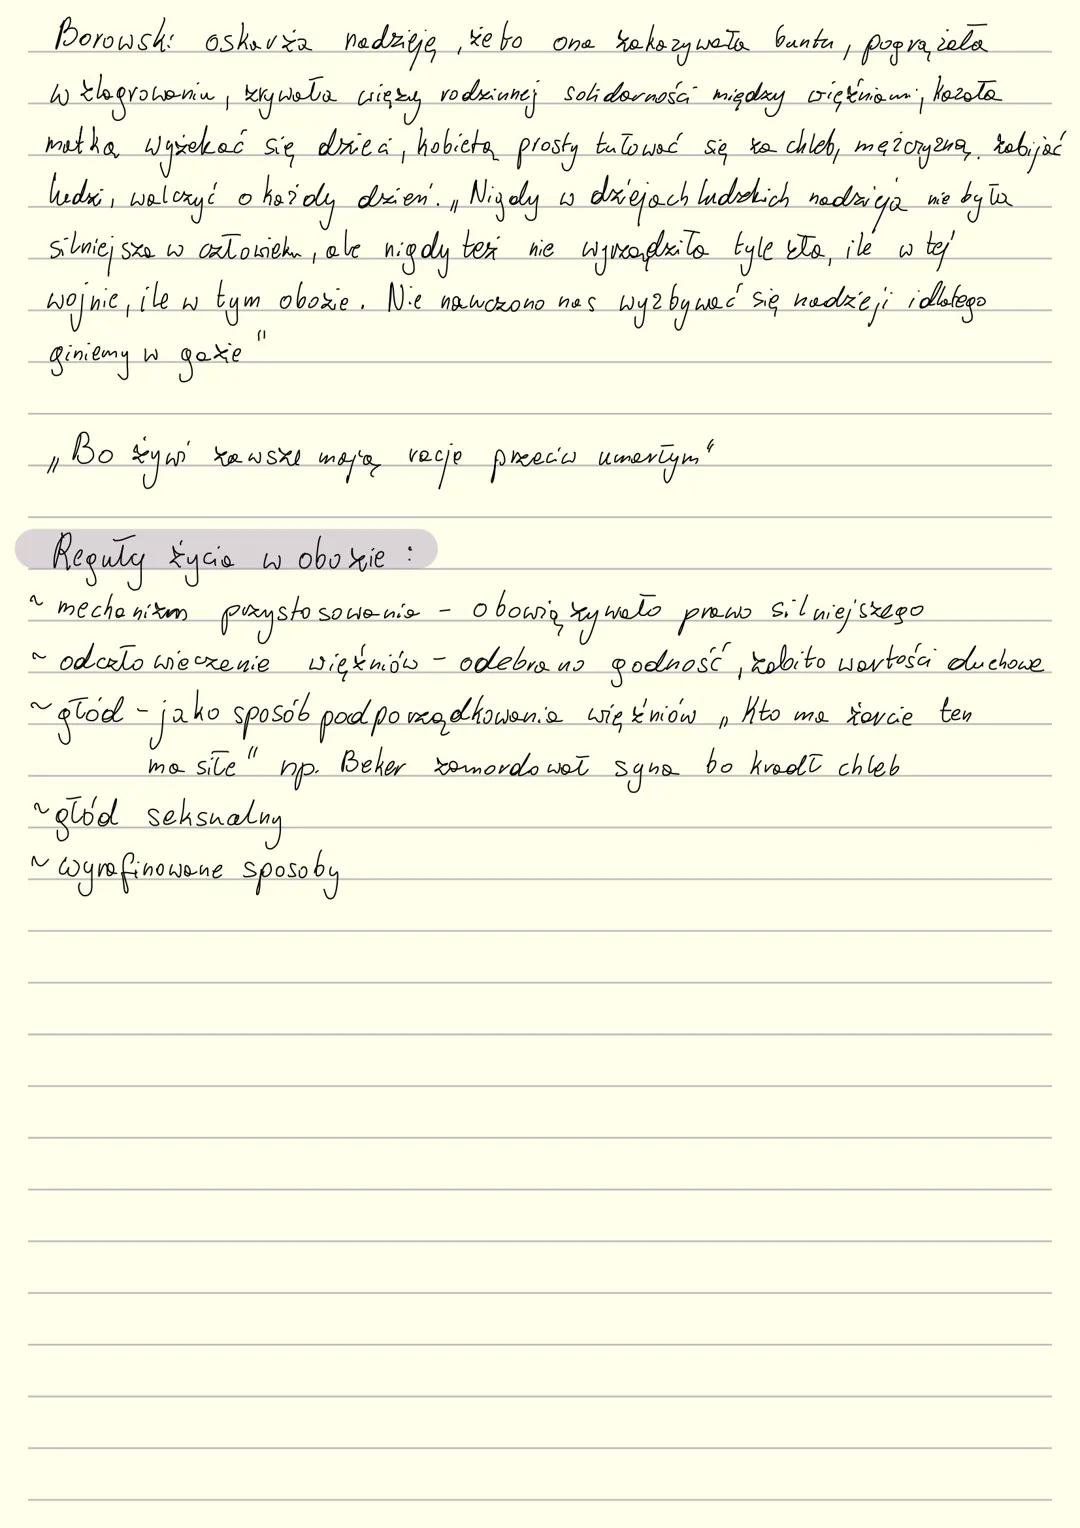 Borowski oskarża nadzieję, że to ona zakazywała buntu, pogrążała
w zlagrowaniu, zrywała więzy rodzinnej solidarności między więźniami, kazała
matką wyżekać się dzieci, kobietą prostytutować się za chleb, mężczyzną zabijać
ludzi, walczyć o każdy dzień. „Nigdy w dziejach ludzkich nadzieja nie była
silniejsza w człowieku, ale nigdy też nie wyrządziła tyle zła, ile w tej
wojnie, ile w tym obozie. Nie nauczono nas wyzbywać się nadzieji i dlatego
giniemy w gazie"
„Bo żywi zawsze mają racje przeciw umarłym"
Reguły życia w obozie :
~ mechanizm przystosowania - obowiązywało prawo silniejszego
~ odczłowieczenie więźniów - odebrano godność, zabito wartości duchowe
~ głód - jako sposób podporządkowania więźniów „Kto ma żarcie ten
ma siłe" np. Beker zamordował syna bo kradł chleb
~ głód seksualny
~ wyrafinowane sposoby